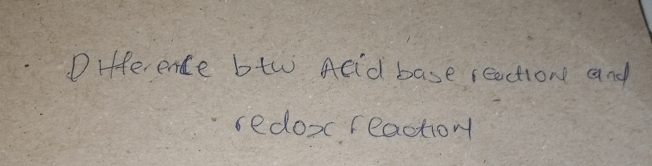 Difference btw Acid base reaction and
redox reaction